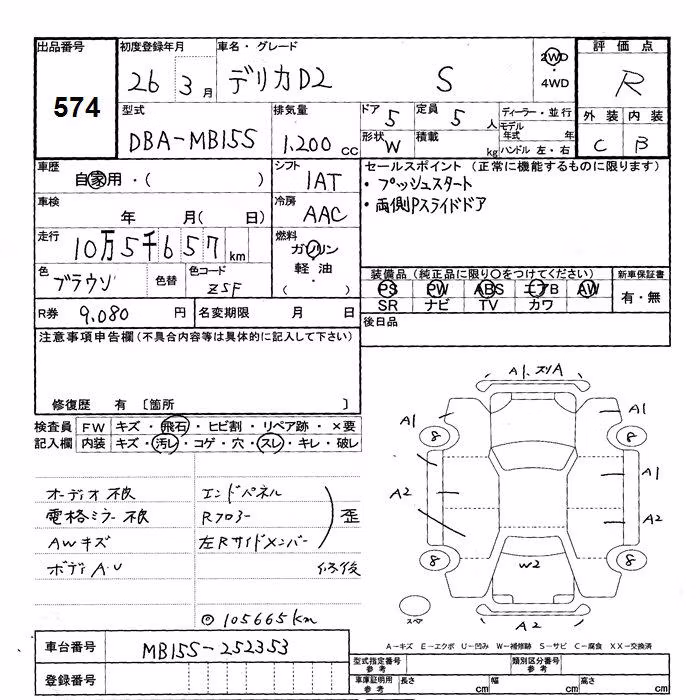 出品番号
574
初度登録年月
26 3月
車名・グレード
デリカD2 S
2WD
・
4WD
評価点
R
外装 内装
C B
型式
DBA-MB15S
排気量
1,200 cc
ドア 5
定員 5 人
形状 W
積載 kg
ディーラー・並行
モデル年式 年
ハンドル 左・右
車歴
自家用・( )
シフト
IAT
車検
年 月( 日)
冷房
AAC
走行
10万5千657 km
燃料
ガソリン
軽油
( ・ )
色
ブラウン
色替
色コード
ZSF
R券 9,080 円
名変期限 月 日
セールスポイント(正常に機能するものに限ります)
・プッシュスタート
・両側Pスライドドア
装備品(純正品に限り○をつけてください)
PS PW ABS エアB AW
SR ナビ TV カワ
新車保証書
有・無
後日品
注意事項申告欄(不具合内容等は具体的に記入して下さい)
修復歴 有 〔箇所 〕
検査員 FW キズ・飛石・ヒビ割・リペア跡・×要
記入欄 内装 キズ・汚レ・コゲ・穴・スレ・キレ・破レ
オーディオ不良
電格ミラー不良
AWキズ
ボディA・U
エンドパネル
Rフロアー
左Rサイドメンバー
歪
修後
◎105665km
A1.スリA
A1
A1
8
8
A1
A2
A2
8
8
W2
スペア
A2
A-キズ E-エクボ U-凹み W-補修跡 S-サビ C-腐食 XX-交換済
車台番号
MB15S-252353
登録番号
型式指定番号 参考
類別区分番号 参考
車庫証明用 参考
長さ cm
幅 cm
高さ cm